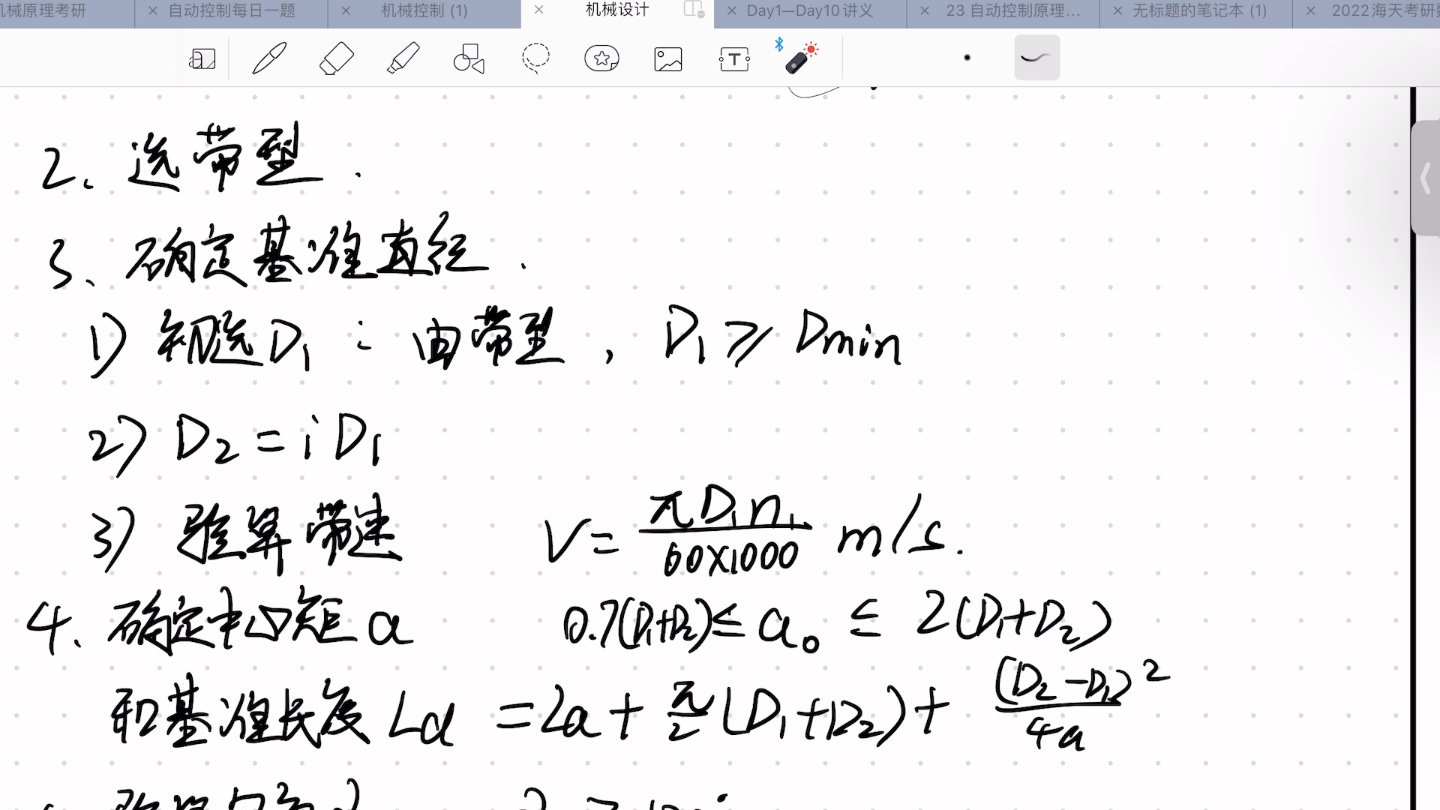 机械原理考研 × 自动控制每日一题 × 机械控制 (1) × 机械设计 × Day1—Day10讲义 × 23 自动控制原理... × 无标题的笔记本 (1) × 2022海天考研
2、选带型.
3、确定基准直径.
1) 初选D₁：由带型，D₁ ⩾ Dmin
2) D₂ = i D₁
3) 验算带速 V = πD₁n₁/60×1000 m/s.
4、确定中心矩 a 0.7(D₁+D₂) ≤ a₀ ≤ 2(D₁+D₂)
和基准长度 Ld = 2a + π/2 (D₁+D₂) + (D₂-D₁)²/4a